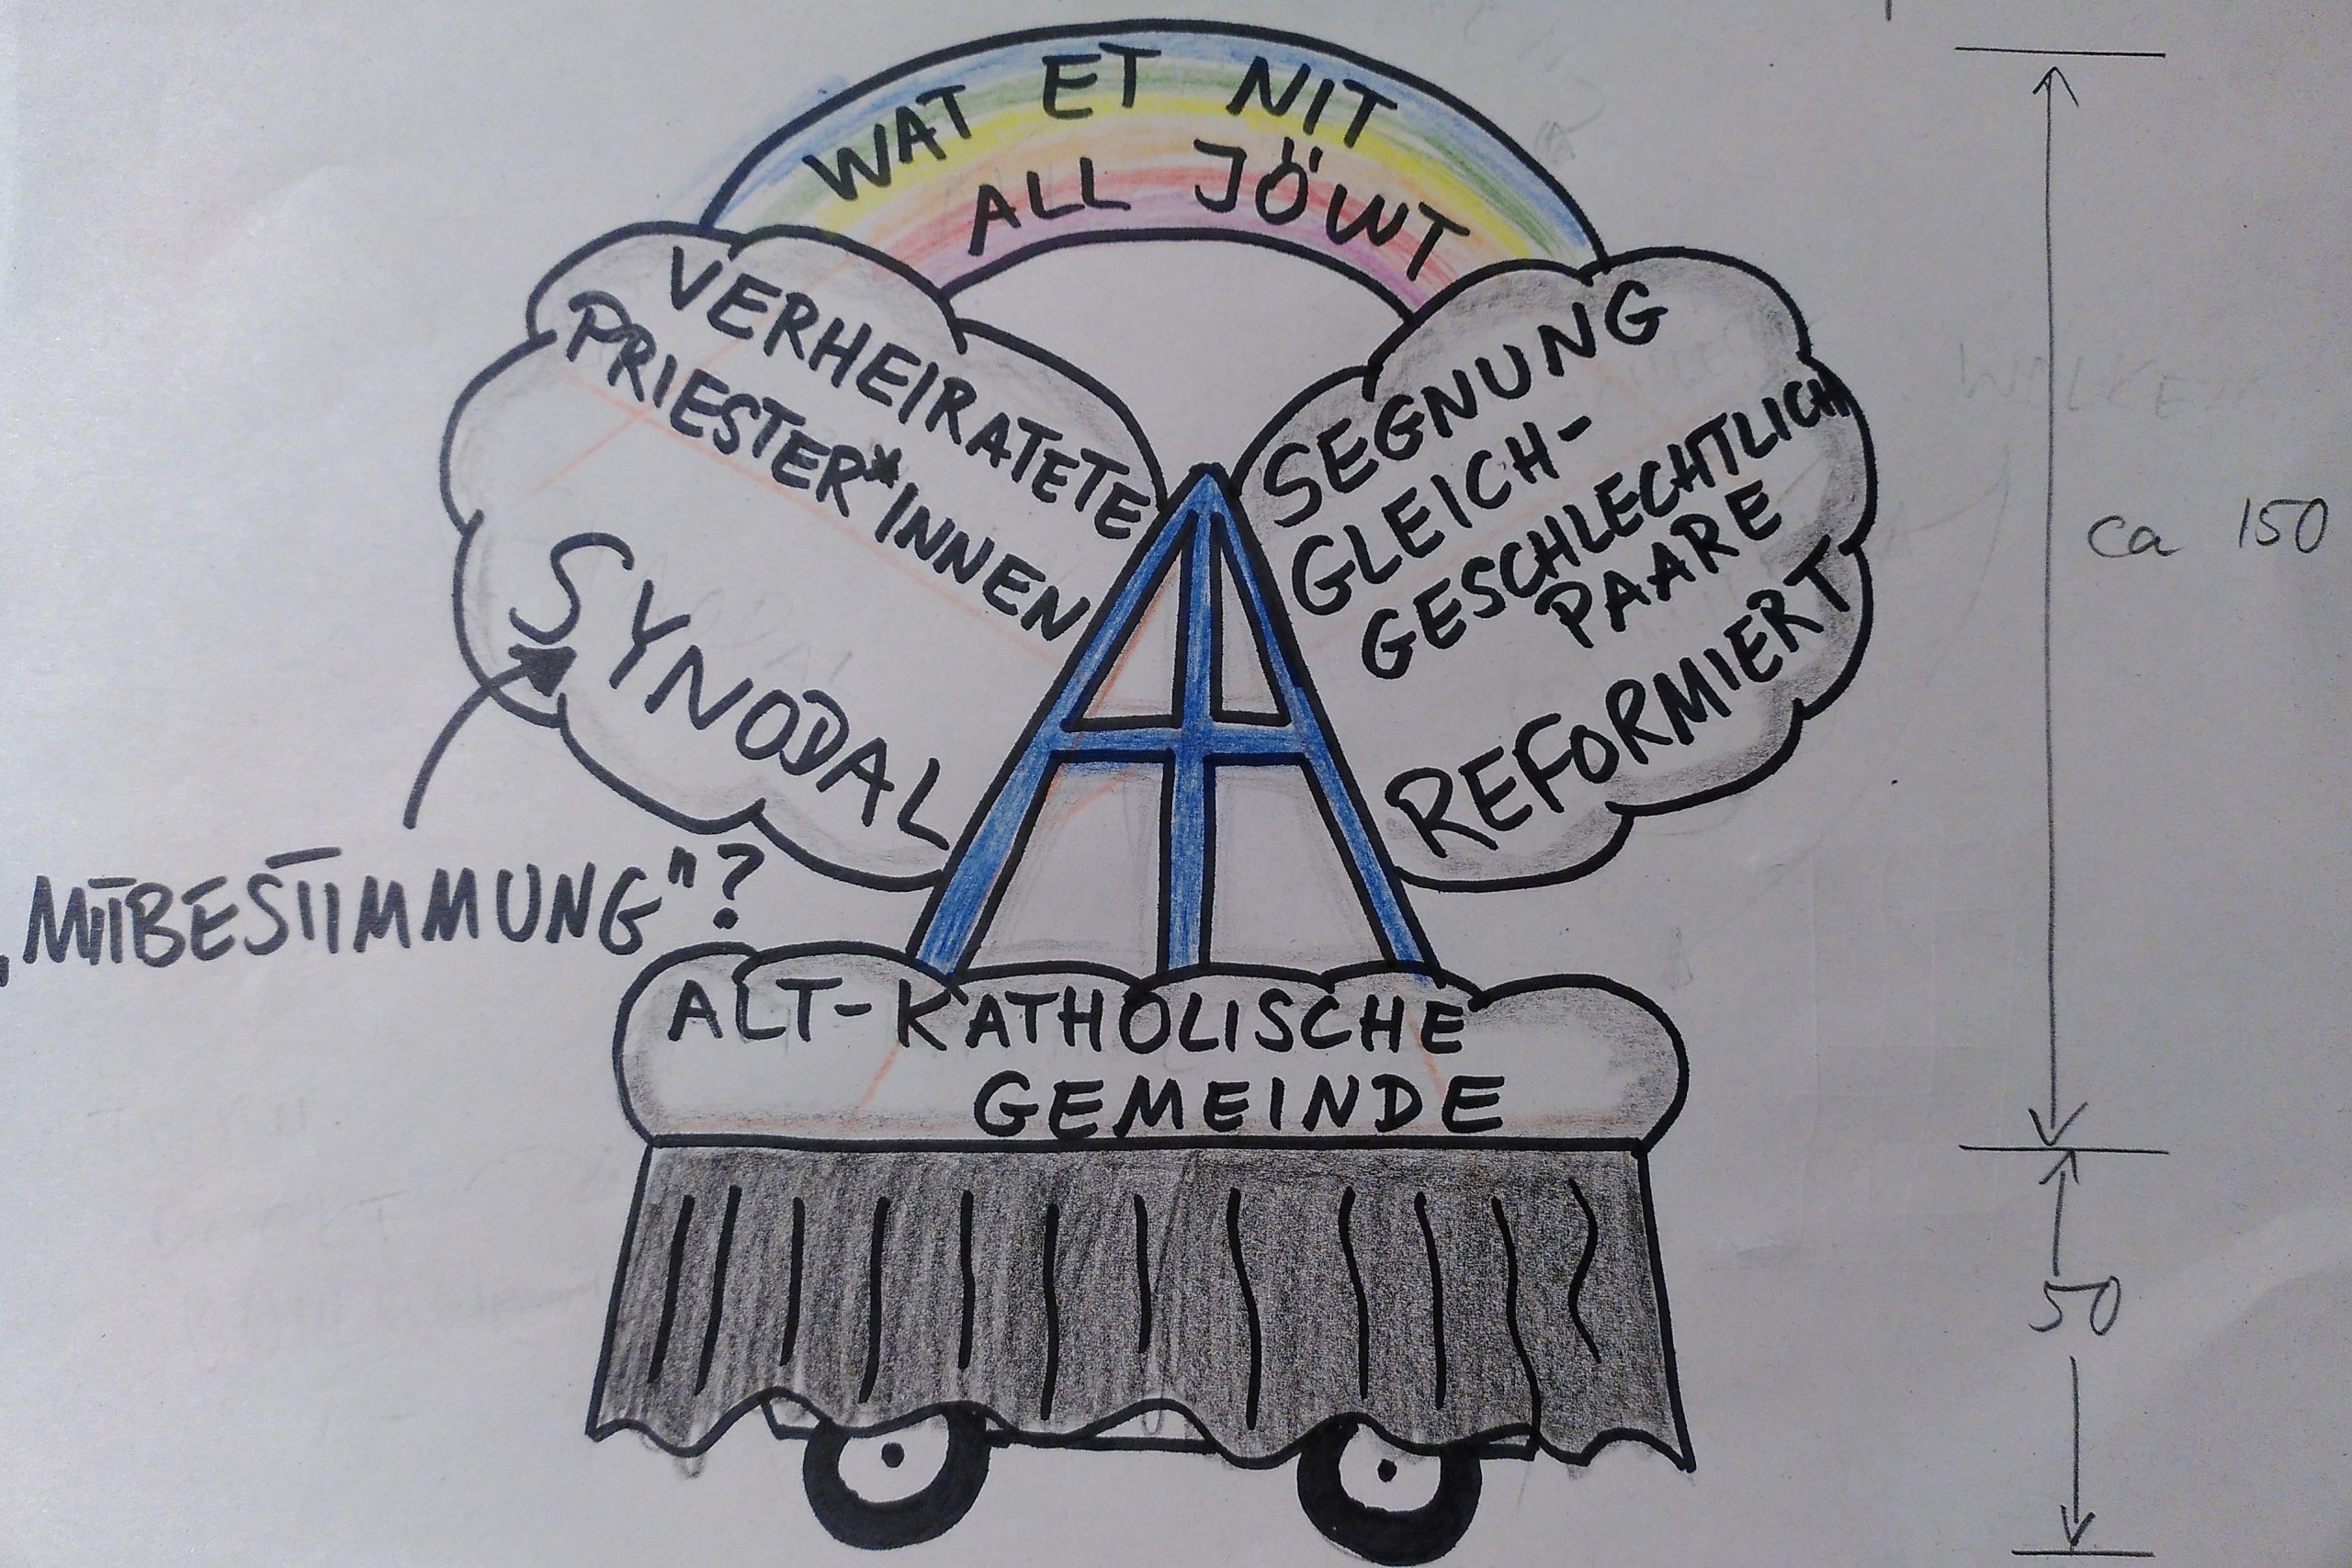 WAT ET NIT
ALL JÖWT
VERHEIRATETE
PRIESTER*INNEN
SYNODAL
SEGNUNG
GLEICH-
GESCHLECHTLICH
PAARE
REFORMIERT
„MITBESTIMMUNG"?
ALT-KATHOLISCHE
GEMEINDE
ca 150
50